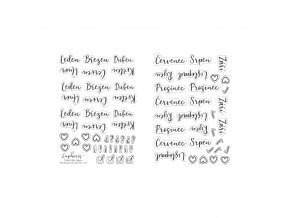 Leden Březen Duben
Květen Červen Únor
Leden Březen Duben
Květen Červen Únor
Leden Březen Duben
Květen Červen Únor
Červenec Srpen
Říjen Listopad
Prosinec Prosinec
Červenec Srpen
Říjen Listopad
Červenec Srpen
Říjen Listopad
Září
Září
Září